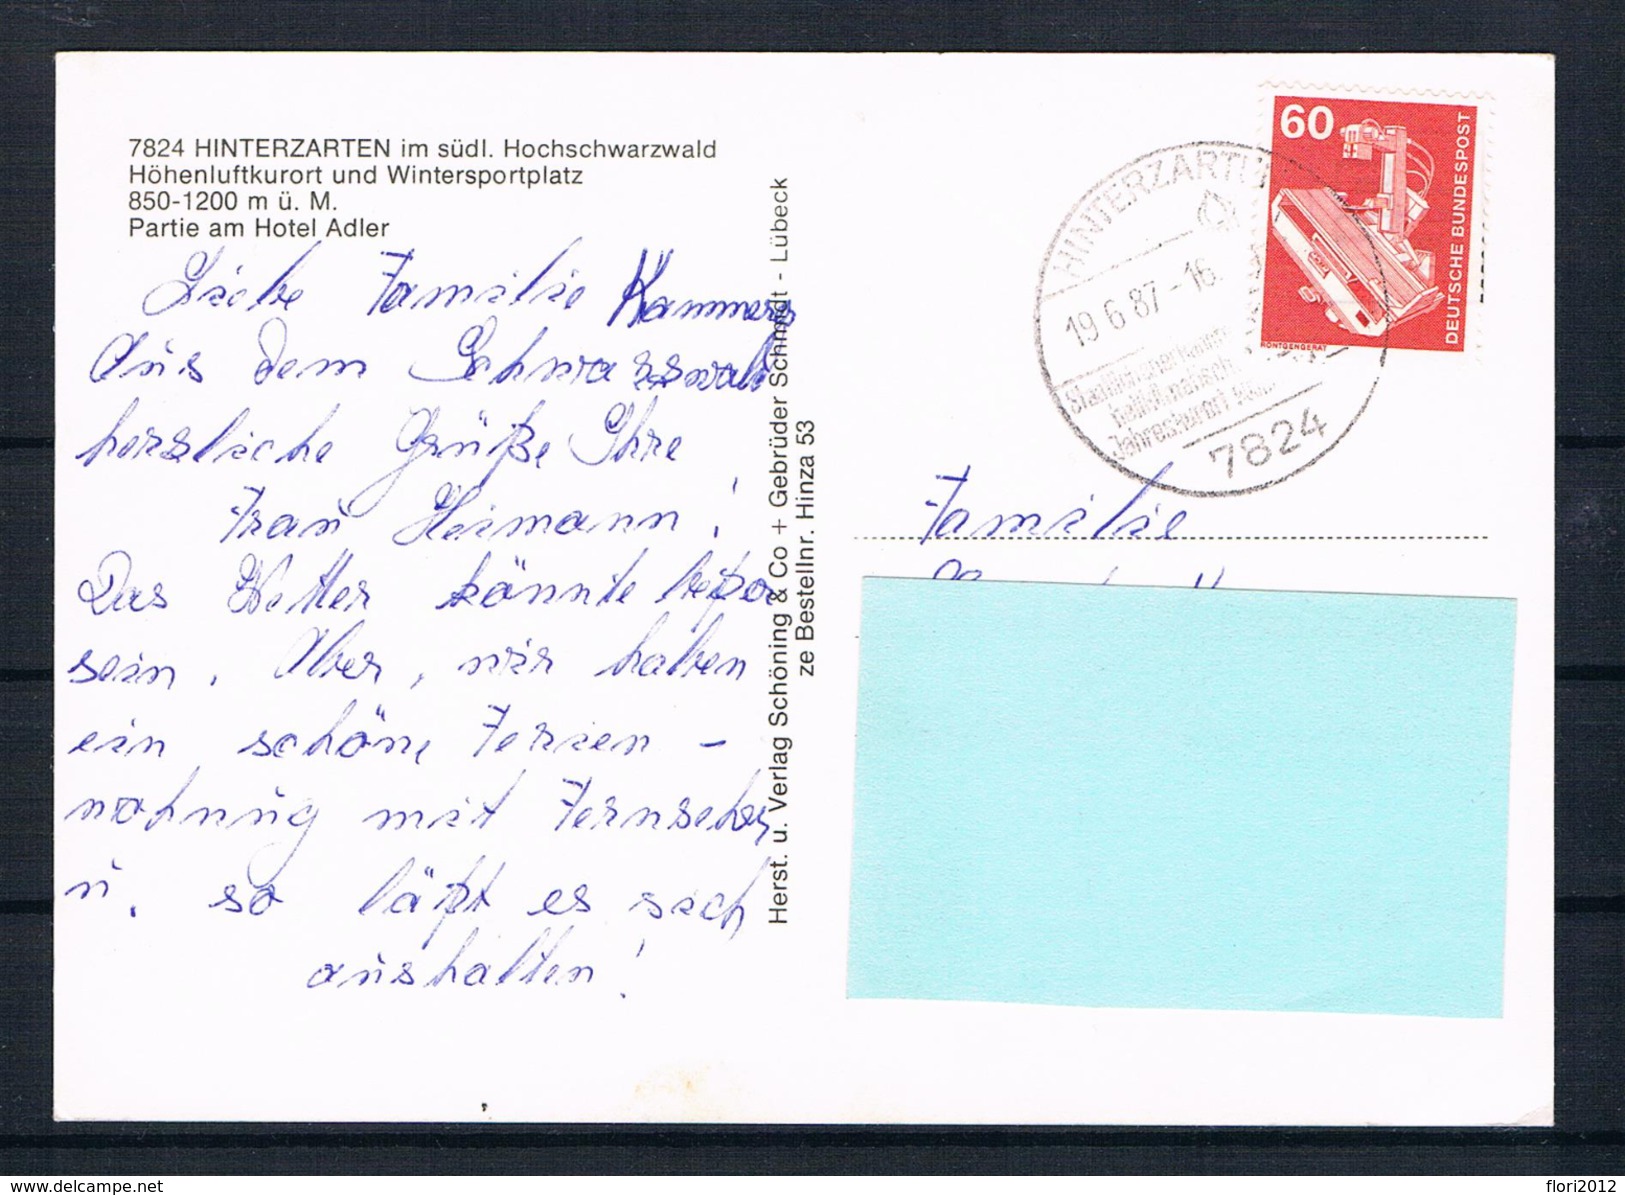 7824 HINTERZARTEN im südl. Hochschwarzwald
Höhenluftkurort und Wintersportplatz
850-1200 m ü. M.
Partie am Hotel Adler
Liebe Familie
Aus dem Schwarzwald
herzliche Grüße Ihre
Frau Heimann!
Das Wetter könnte
sein. Aber, wir haben
ein schöne Ferien-
wohnung mit Fernseher
u. so läßt es sich
aushalten!
Herst. u. Verlag Schöning & Co + Gebrüder Schmidt - Lübeck
ze Bestellnr. Hinza 53
HINTERZARTEN
19.6.87-16
Jahreskurort
7824
60
DEUTSCHE BUNDESPOST
RÖNTGENGERÄT
Familie
www.delcampe.net
flori2012